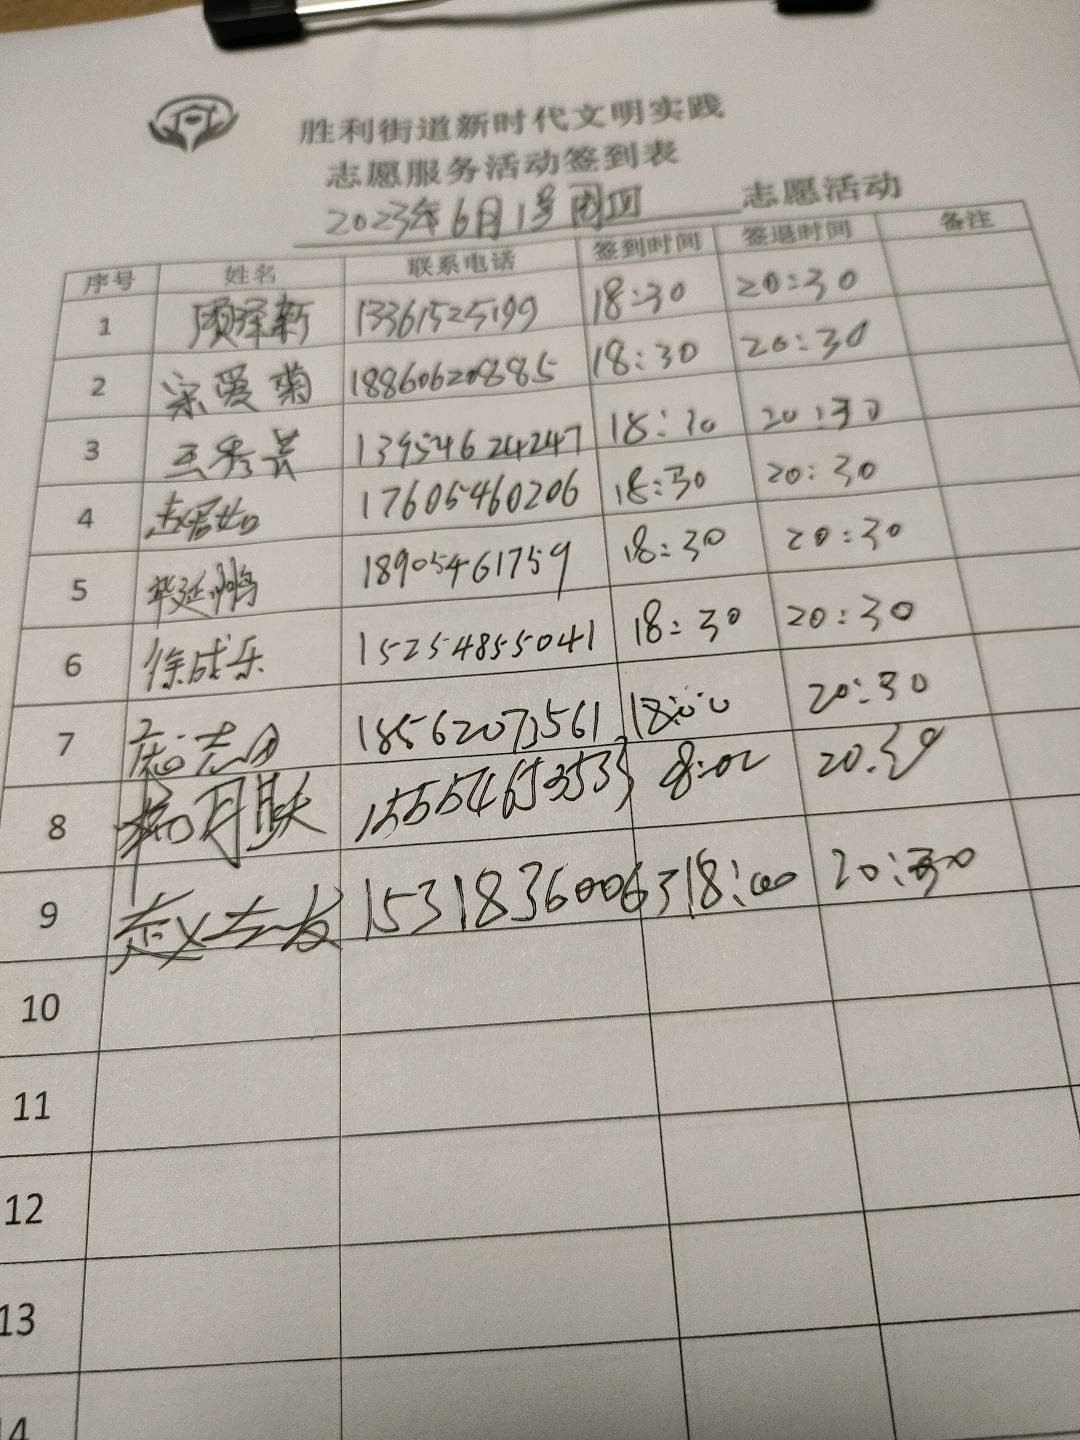 胜利街道新时代文明实践
志愿服务活动签到表
2023年6月1号周四 志愿活动
序号 姓名 联系电话 签到时间 签退时间 备注
1 顾泽新 13361525199 18:30 20:30
2 宋爱菊 18860620885 18:30 20:30
3 王秀芸 13954624247 18:30 20:30
4 17605460206 18:30 20:30
5 华延鹏 18905461759 18:30 20:30
6 徐成乐 15254855041 18:30 20:30
7 18562073561 18:00 20:30
8 杨月肤 15554653533 8:02 20:30
9 15318360063 18:00 20:30
10
11
12
13
14